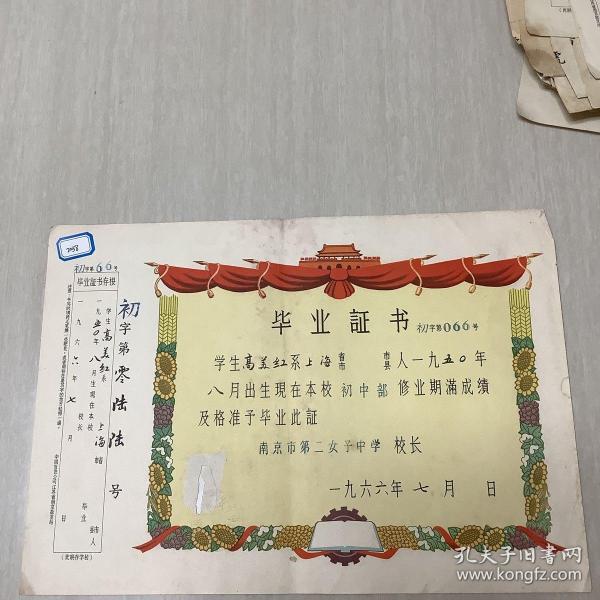 毕业証书 初字第066号
学生高美红系上海省市 市县人一九五〇年
八月出生現在本校初中部修业期滿成績
及格准予毕业此証
南京市第二女子中学 校长
一九六六年七月 日
初字第零陆陆号
2158
初字第66号
毕业証书存根
学生高美红系上海省市 市县人
一九五〇年八月生現在本校 毕业
校长
一九六六年七月 日
(此联存学校)
孔夫子旧书网
www.kongfz.com